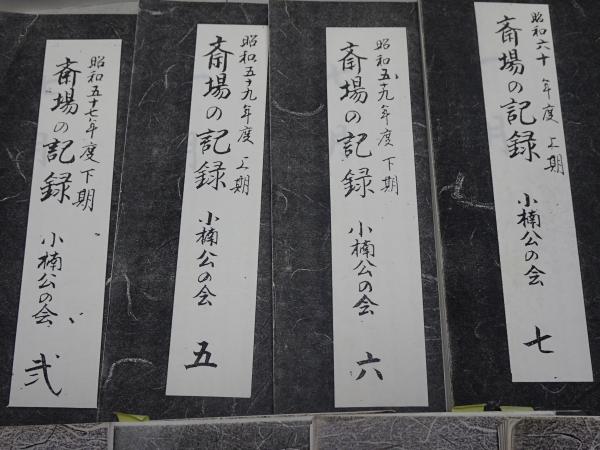 昭和五十七年度下期
斎場の記録
小楠公の会
弐
昭和五十九年度上期
斎場の記録
小楠公の会
五
昭和五十九年度下期
斎場の記録
小楠公の会
六
昭和六十年度上期
斎場の記録
小楠公の会
七